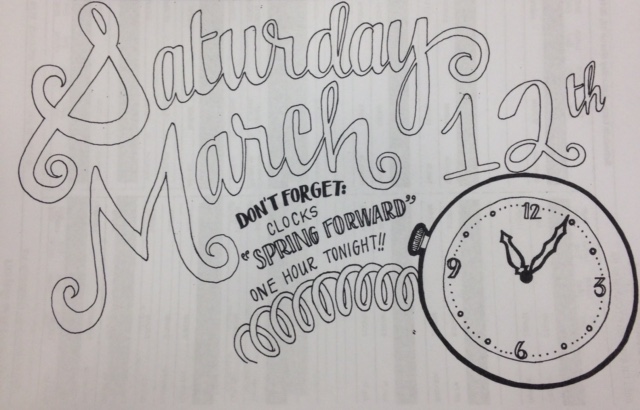 Saturday
March 12th
DON'T FORGET:
CLOCKS
"SPRING FORWARD"
ONE HOUR TONIGHT!!
12
9
3
6